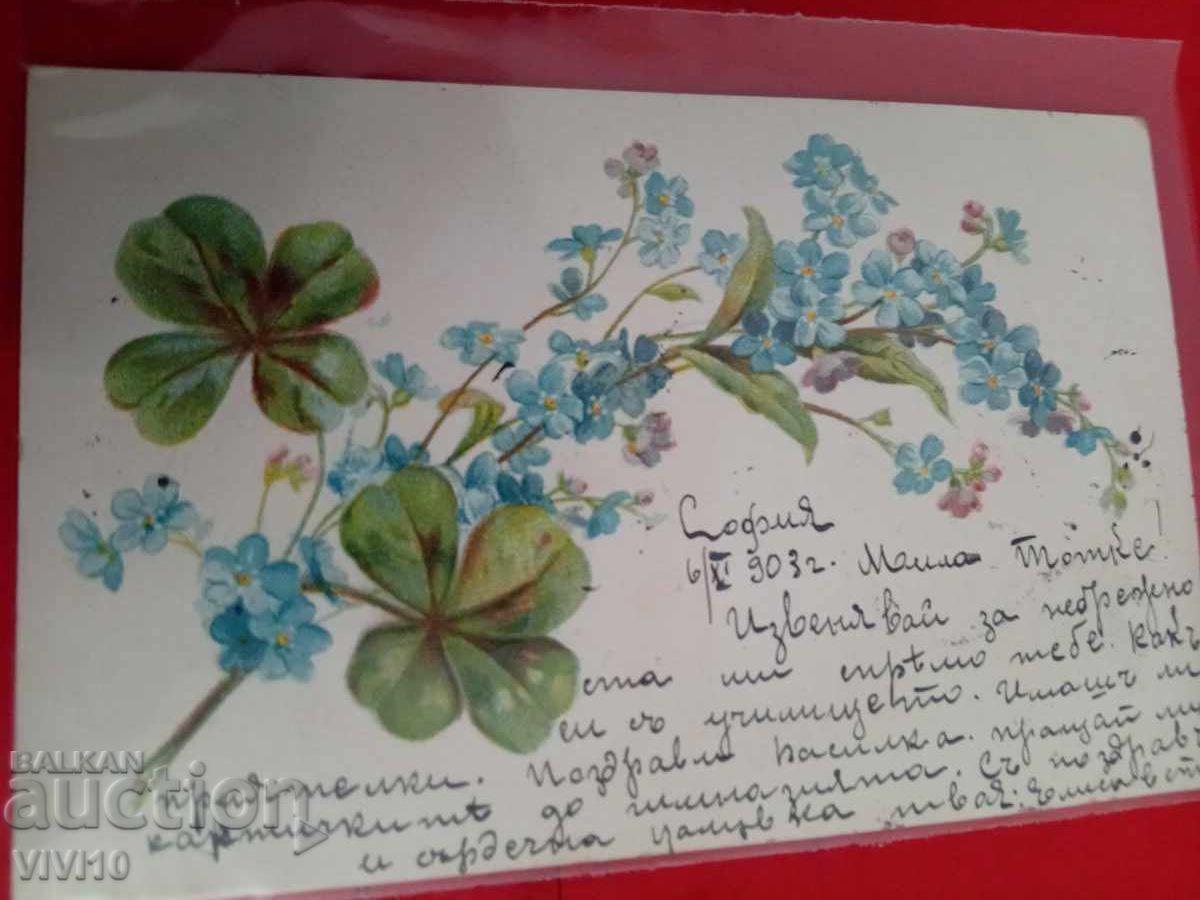 София
6/XI 903 г. Моила Тотке!
Извенявай за небрежно
ста ми спрѣмо тебе. Какъ
си съ училището. Имашъ ли
приятелки. Поздрави Василка. пращай ми
картичкитѣ до гимназията. Съ поздравъ
и сърдечна целувка твоя: Елисавета
BALKAN
auction
VIVI10